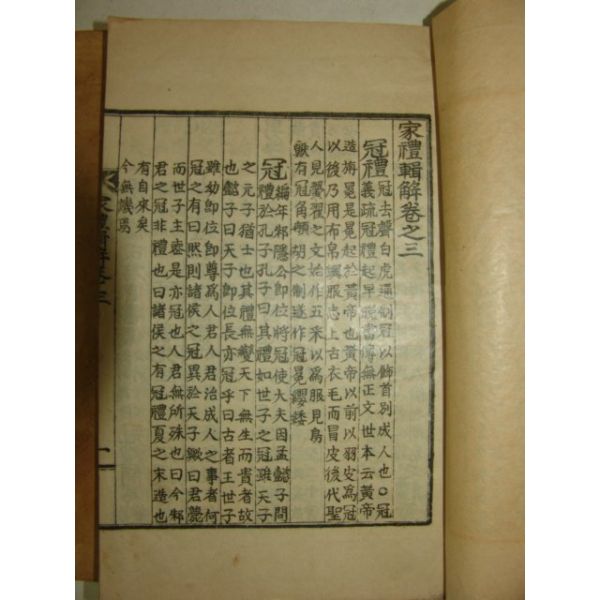 家禮輯解卷之三
冠禮冠去聲白虎通制冠以飾首別成人也○冠
義疏冠禮起早晚書傳無正文世本云黃帝
造旃冕是冕起於黃帝也黃帝以前以羽皮為冠
以後乃用布帛輿服志上古衣毛而冒皮後代聖
人見翬翟之文始作五采以為服見鳥
獸有冠角䫇胡之制遂作冠冕纓緌
冠禮編年邾隱公卽位將冠使大夫因孟懿子問
禮於孔子孔子曰其禮如世子之冠雖天子
之元子猶士也其禮無變天下無生而貴者故
也懿子曰天子卽位長亦冠乎曰古者王世子
雖幼卽位卽尊為人君人君治成人之事者何
冠之有曰然則諸侯之冠異於天子歟曰君薨
而世子主喪是亦冠也人君無所殊也曰今邾
君之冠非禮也曰諸侯之有冠禮夏之末造也
有自來矣
今無譏焉
家禮輯解卷三
一